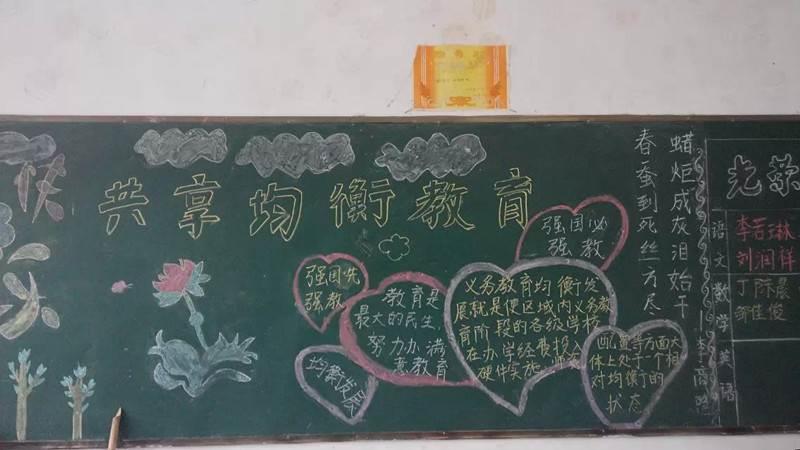 共享均衡教育
强国先
强教
教育是
最大的民生
努力办满
意教育
均衡发展
强国必
强教
义务教育均衡发
展就是使区域内义务教
育阶段的各级学校
在办学经费投入
硬件实施
等方面大
体上处于一个相
对均衡的
状态
春蚕到死丝方尽
蜡炬成灰泪始干
李商隐
光荣
语文
李若琳
刘润祥
数学
丁陈晨
邹佳俊
英语